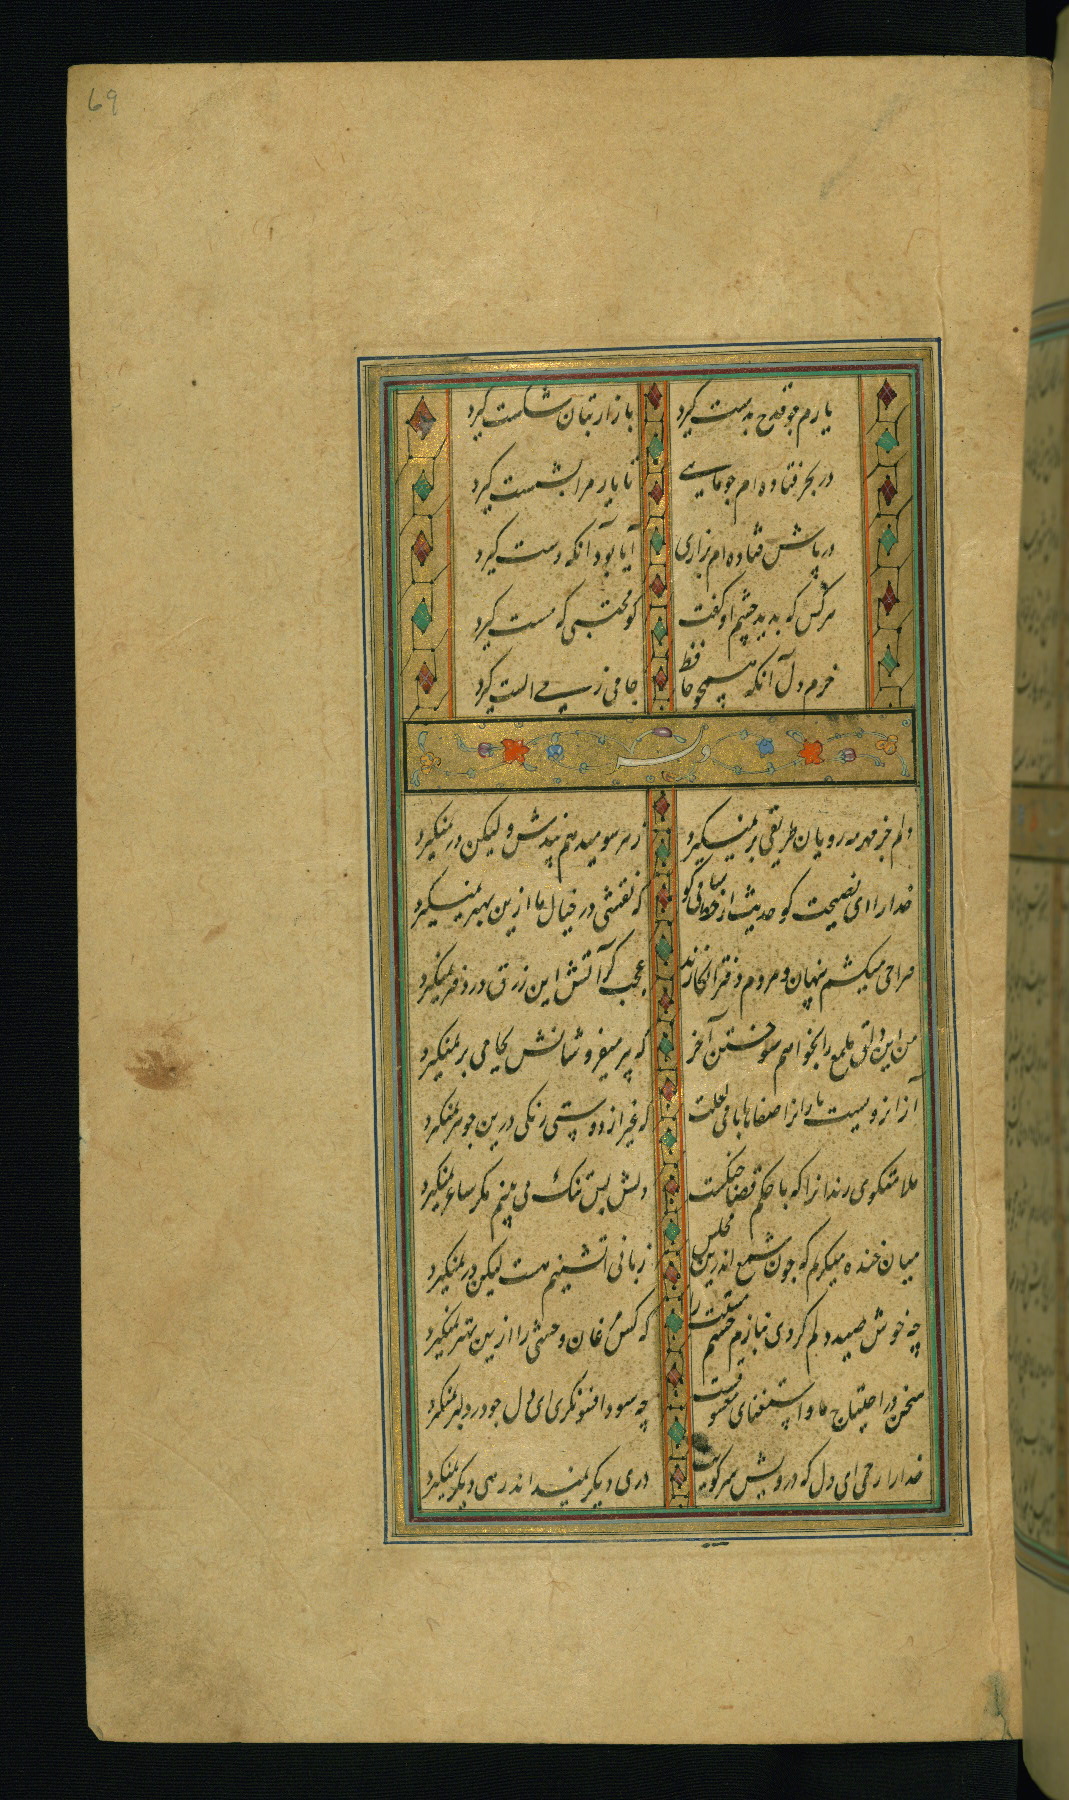 69
یارم جو قدح بدست گیرد بازار بتان شکست گیرد
در بحر فتاده ام جو ماهی تا یار مرا بشست گیرد
در پاش فتاده ام بزاری آیا بود آنکه دست گیرد
هرکس که بدید چشم او گفت کو محتسبی که مست گیرد
خرم دل آنکه همچو حافظ جامی ز می الست گیرد
وله
دلم جز مهر مه رویان طریقی بر نمیگیرد ز هر سو میدهم پندش ولیکن در نمیگیرد
خدارا ای نصیحت کو حدیث از ساقی کو که نقشی در خیال ما ازین بهتر نمیگیرد
صراحی میکشم پنهان و مردم دفتر انکارند عجب کر آتش این زرق در دفتر نمیگیرد
من این دلق ملمع را بخواهم سوختن آخر که پیر میفروشانش بجامی بر نمیگیرد
از انروست یارانرا صفاها با می لعلت که غیر از راستی نگی درین جوهر نمیگیرد
ملامتکوی رندانرا که با حکم قضا جنکست دلش بس تنک می بینم مکر ساغر نمیگیرد
میان خنده میکریم که جون شمع اندرین مجلس زبانی آتشینم هست لیکن در نمیگیرد
چه خوش صید دلم کردی بنازم چشم مستت را که کس مرغان وحشی را ازین بهتر نمیگیرد
سخن در احتیاج ما و استغنای معشوقست چه سود افسونکری ای دل جو در دلبر نمیگیرد
خدارا رحمی ای دل که درویش سر کویت دری دیکر نمیداند رهی دیکر نمیگیرد